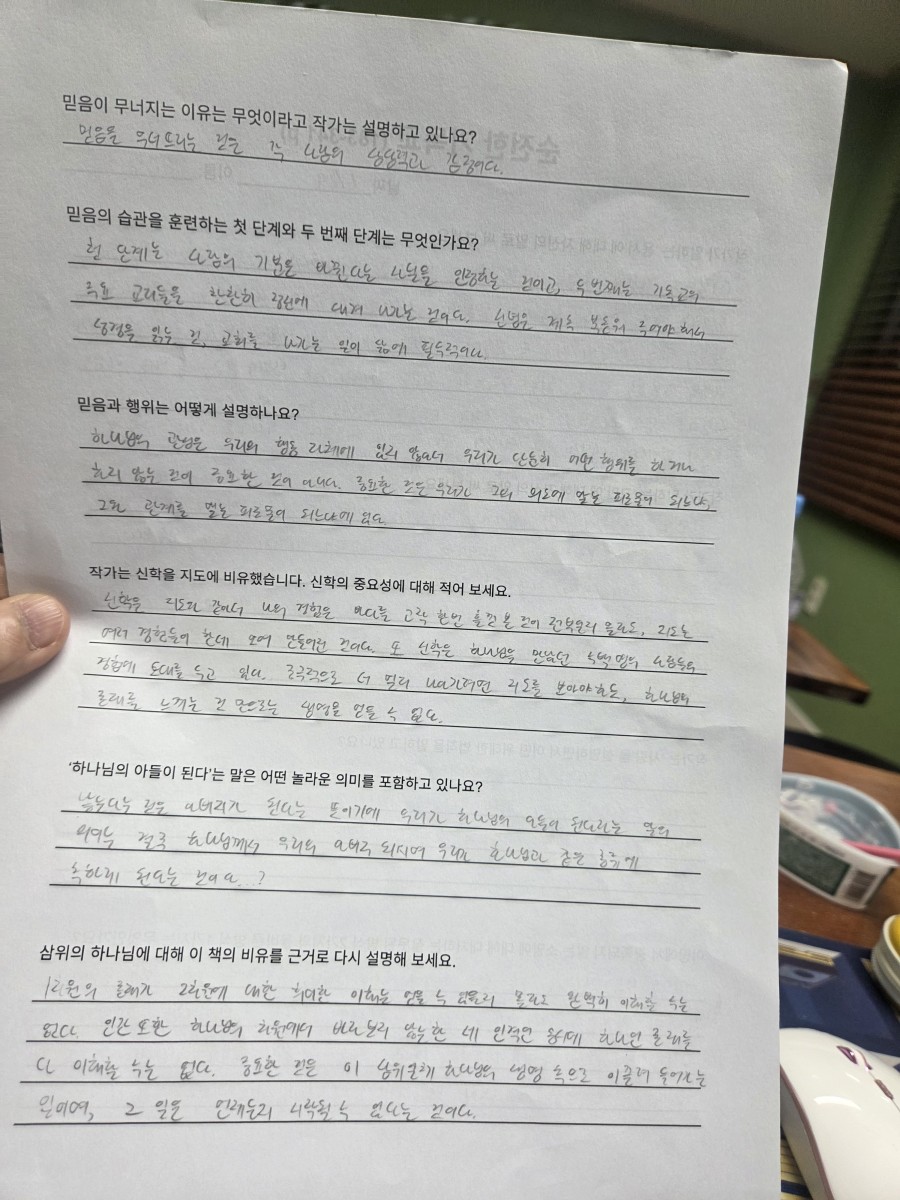 믿음이 무너지는 이유는 무엇이라고 작가는 설명하고 있나요?
믿음을 무너뜨리는 것은 각 사람의 상상력과 감정이다.
믿음의 습관을 훈련하는 첫 단계와 두 번째 단계는 무엇인가요?
첫 단계는 사람의 기분은 바뀐다는 사실을 인정하는 것이고, 두 번째는 기독교의
주요 교리들을 찬찬히 정신에 대려 나가는 것이다. 신념은 계속 북돋워 주어야 해서
성경을 읽는 것, 교회를 나가는 일이 삶에 필수적이다.
믿음과 행위는 어떻게 설명하나요?
하나님의 관심은 우리의 행동 자체에 있지 않아서 우리가 단순히 어떤 행위를 하거나
하지 않는 것이 중요한 것이 아니다. 중요한 것은 우리가 그의 의도에 맞는 피조물이 되느냐,
그와 관계를 맺는 피조물이 되느냐에 있다.
작가는 신학을 지도에 비유했습니다. 신학의 중요성에 대해 적어 보세요.
신학은 지도와 같아서 나의 경험은 바다를 고작 한번 흘깃 본 것이 전부일지 몰라도, 지도는
여러 경험들이 한데 모여 만들어진 것이다. 또 신학은 하나님을 만났던 수백 명의 사람들의
경험에 토대를 두고 있다. 궁극적으로 더 멀리 나아가려면 지도를 보아야 하듯, 하나님의
존재를 느끼는 것 만으로는 생명을 얻을 수 없다.
'하나님의 아들이 된다'는 말은 어떤 놀라운 의미를 포함하고 있나요?
낳는다는 것은 아버지가 된다는 뜻이기에 우리가 하나님의 아들이 된다라는 말의
의미는 결국 하나님께서 우리의 아버지 되시며 우리도 하나님과 같은 종류에
속하게 된다는 것이다..?
삼위의 하나님에 대해 이 책의 비유를 근거로 다시 설명해 보세요.
1차원의 존재가 2차원에 대한 희미한 이해는 얻을 수 있을지 몰라도 완벽히 이해할 수는
없다. 인간 또한 하나님의 차원에서 바라보지 않는 한 세 인격인 동시에 하나인 존재를
다 이해할 수는 없다. 중요한 것은 이 삼위일체 하나님의 생명 속으로 이끌려 들어가는
일이며, 그 일은 언제든지 시작될 수 있다는 것이다.